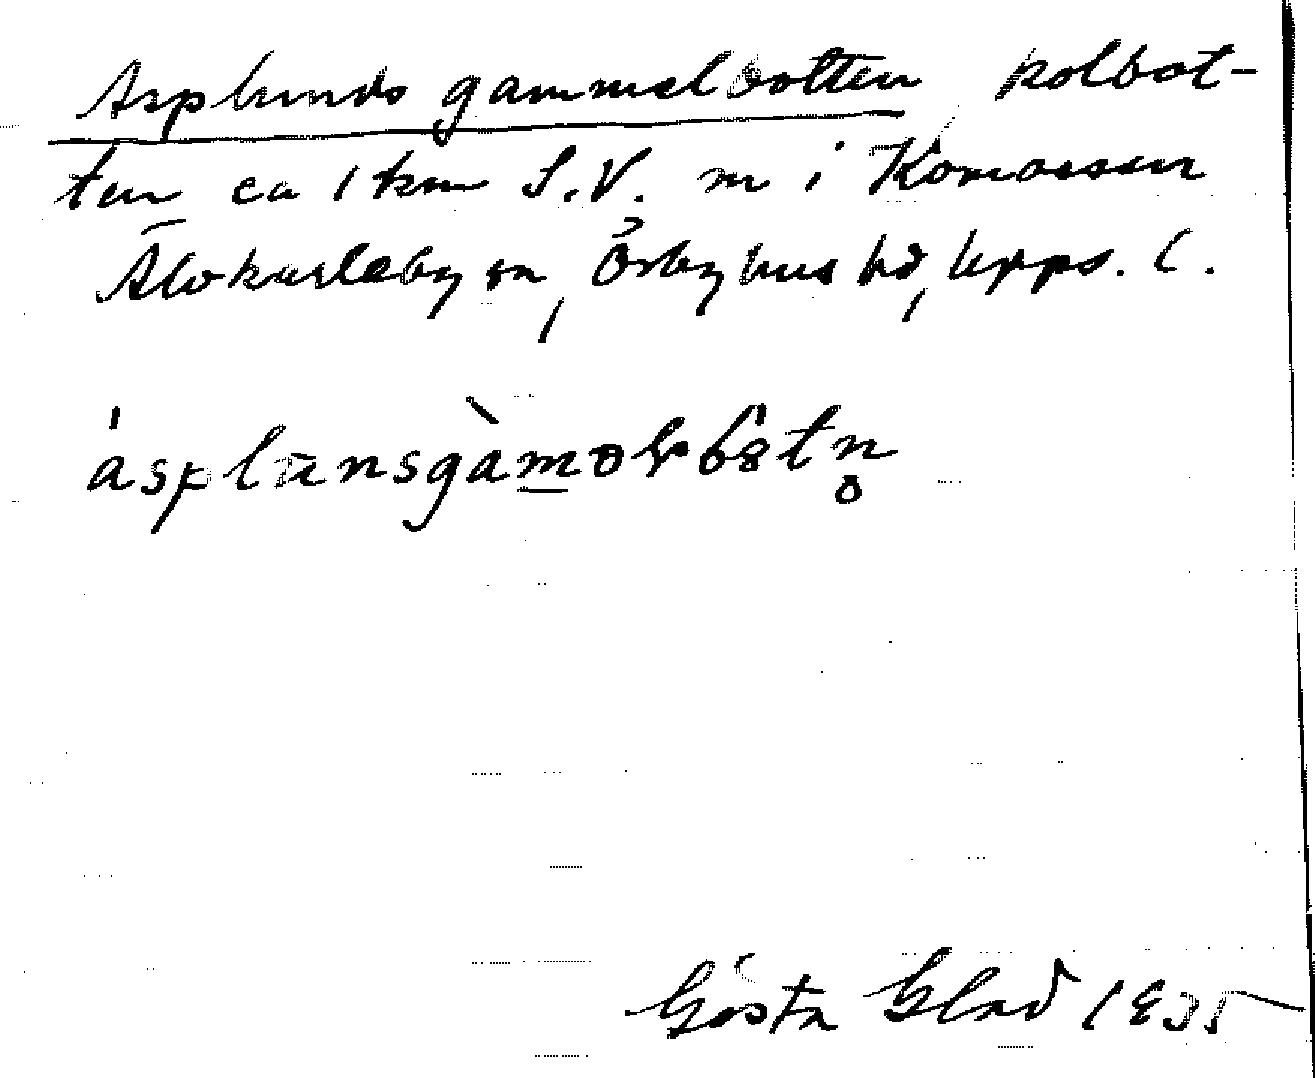 Asplunds gammelbotten kolbot-
ten ca 1 km S.V. m i Komossen
Älvkarleby sn, Örbyhus hd, Upps. l.
asplunsgàmolbòtn
Gösta Glad 1935